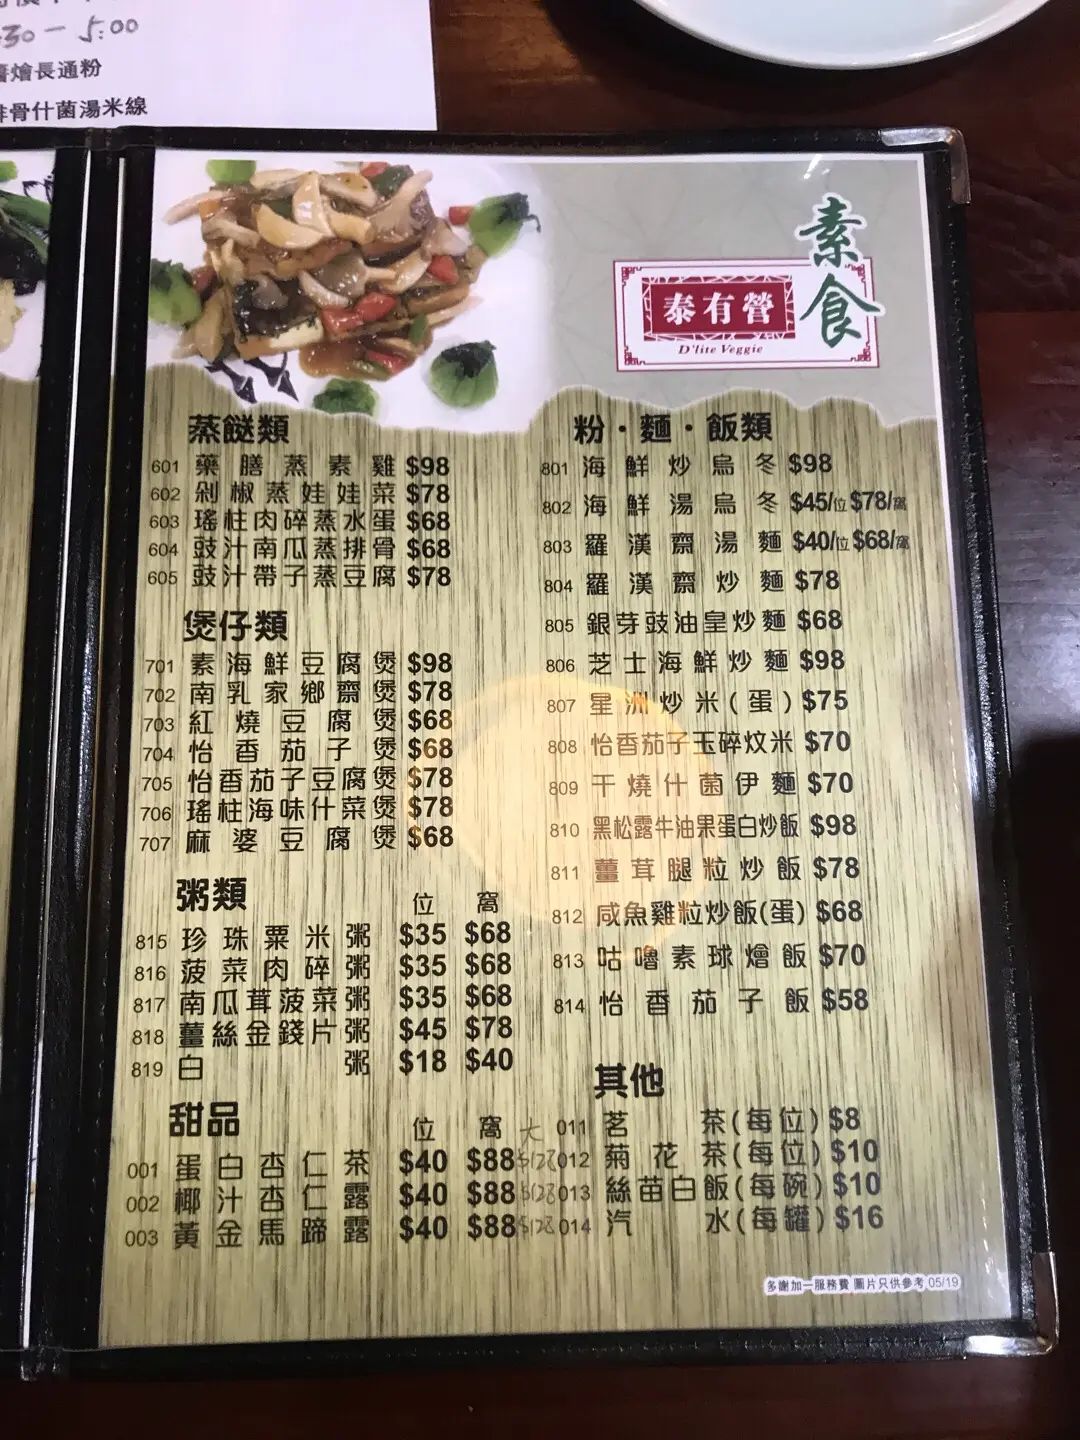 30 - 5:00
燴長通粉
排骨什菌湯米線
素食
泰有營
D'lite Veggie
蒸餸類
601 藥膳蒸素雞 $98
602 剁椒蒸娃娃菜 $78
603 瑤柱肉碎蒸水蛋 $68
604 豉汁南瓜蒸排骨 $68
605 豉汁帶子蒸豆腐 $78
煲仔類
701 素海鮮豆腐煲 $98
702 南乳家鄉齋煲 $78
703 紅燒豆腐煲 $68
704 怡香茄子煲 $68
705 怡香茄子豆腐煲 $78
706 瑤柱海味什菜煲 $78
707 麻婆豆腐煲 $68
粥類 位 窩
815 珍珠粟米粥 $35 $68
816 菠菜肉碎粥 $35 $68
817 南瓜茸菠菜粥 $35 $68
818 薑絲金錢片粥 $45 $78
819 白粥 $18 $40
甜品 位 窩 大
001 蛋白杏仁茶 $40 $88 $128
002 椰汁杏仁露 $40 $88 $128
003 黃金馬蹄露 $40 $88 $128
粉·麵·飯類
801 海鮮炒烏冬 $98
802 海鮮湯烏冬 $45/位 $78/窩
803 羅漢齋湯麵 $40/位 $68/窩
804 羅漢齋炒麵 $78
805 銀芽豉油皇炒麵 $68
806 芝士海鮮炒麵 $98
807 星洲炒米(蛋) $75
808 怡香茄子玉碎炆米 $70
809 干燒什菌伊麵 $70
810 黑松露牛油果蛋白炒飯 $98
811 薑茸腿粒炒飯 $78
812 咸魚雞粒炒飯(蛋) $68
813 咕嚕素球燴飯 $70
814 怡香茄子飯 $58
其他
011 茗茶(每位) $8
012 菊花茶(每位) $10
013 絲苗白飯(每碗) $10
014 汽水(每罐) $16
多謝加一服務費 圖片只供參考 05/19